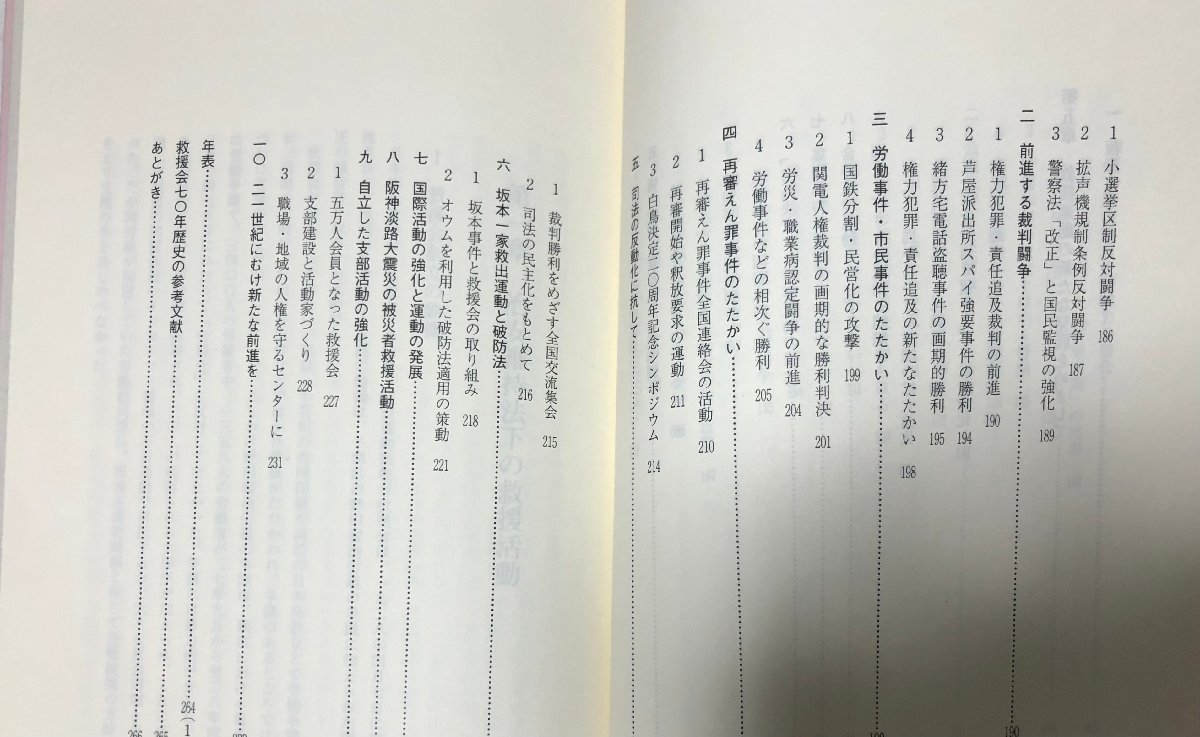 1 小選挙区制反対闘争 186
2 拡声機規制条例反対闘争 187
3 警察法「改正」と国民監視の強化 189
二 前進する裁判闘争 190
1 権力犯罪・責任追及裁判の前進 190
2 芦屋派出所スパイ強要事件の勝利 194
3 緒方宅電話盗聴事件の画期的勝利 195
4 権力犯罪・責任追及の新たなたたかい 198
三 労働事件・市民事件のたたかい
1 国鉄分割・民営化の攻撃 199
2 関電人権裁判の画期的な勝利判決 201
3 労災・職業病認定闘争の前進 204
4 労働事件などの相次ぐ勝利 205
四 再審えん罪事件のたたかい
1 再審えん罪事件全国連絡会の活動 210
2 再審開始や釈放要求の運動 211
3 白鳥決定二〇周年記念シンポジウム 214
五 司法の反動化に抗して
1 裁判勝利をめざす全国交流集会 215
2 司法の民主化をもとめて 216
六 坂本一家救出運動と破防法
1 坂本事件と救援会の取り組み 218
2 オウムを利用した破防法適用の策動 221
七 国際活動の強化と運動の発展
八 阪神淡路大震災の被災者救援活動
九 自立した支部活動の強化
1 五万人会員となった救援会 227
2 支部建設と活動家づくり 228
3 職場・地域の人権を守るセンターに 231
一〇 二一世紀にむけ新たな前進を
年表 264(1
救援会七〇年歴史の参考文献 265
あとがき 266